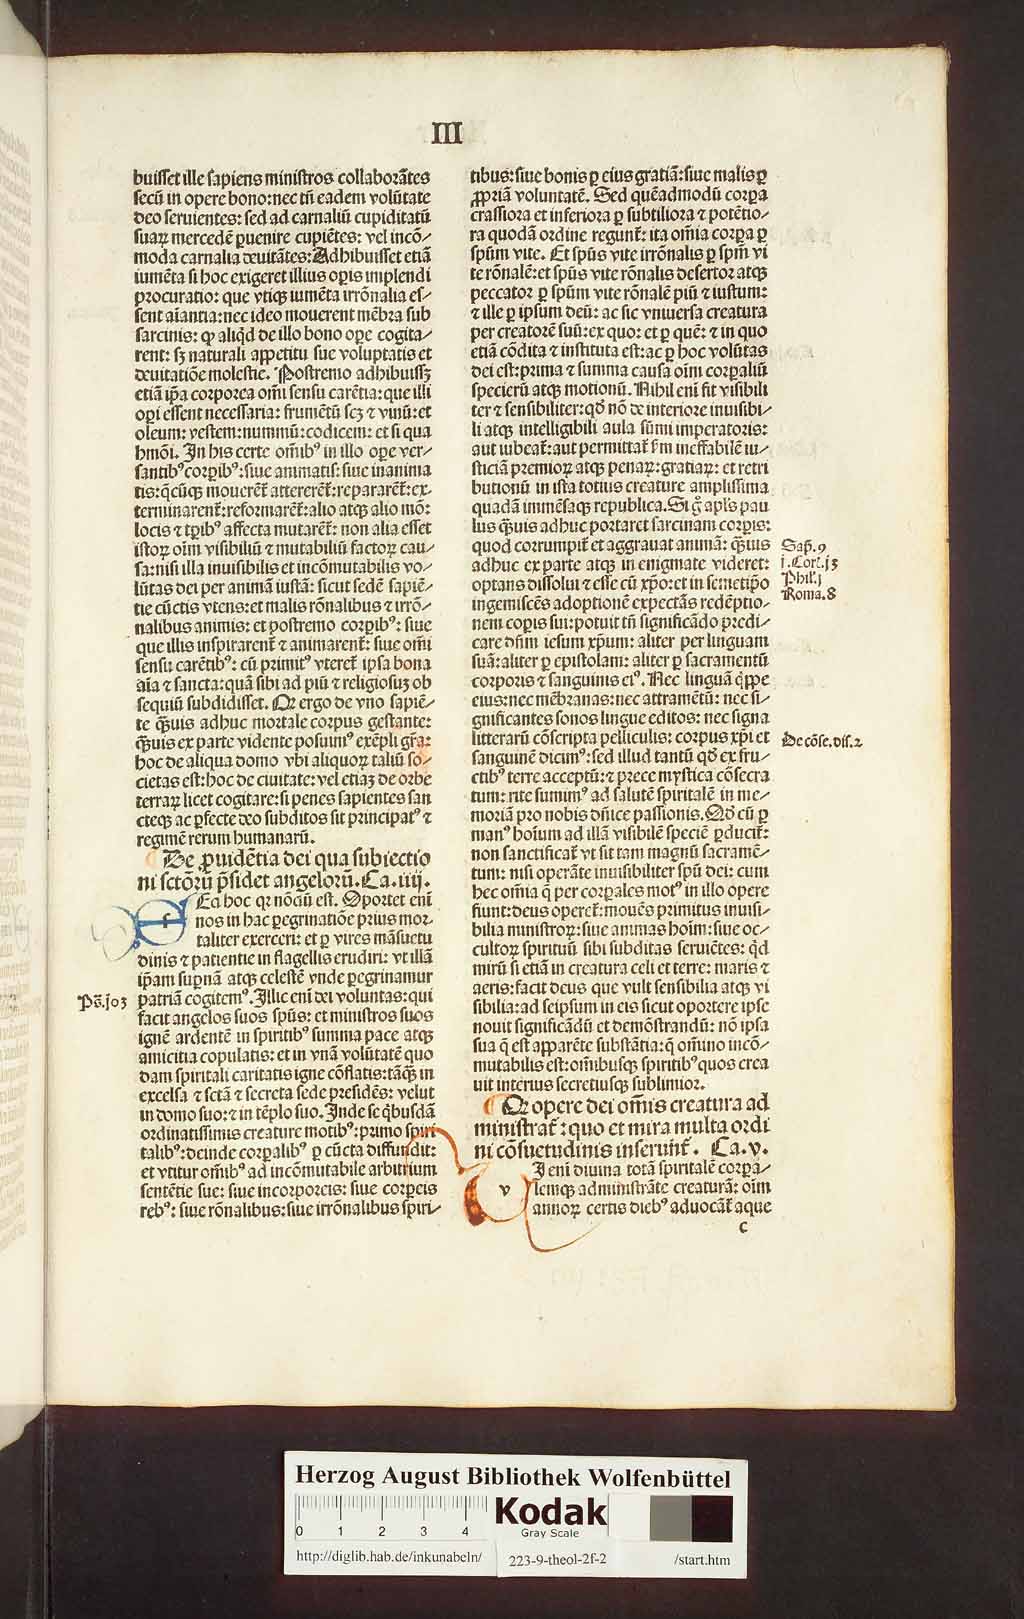 III
buisset ille sapiens ministros collaborātes
secū in opere bono: nec tñ eadem volūtate
deo seruientes: sed ad carnaliū cupiditatū
suaꝝ mercedē ꝑuenire cupiētes: vel incō⸗
moda carnalia deuitātes: Adhibuisset etiā
iumēta si hoc exigeret illius oꝑis implendi
procuratio: que vtiqꝫ iumēta irrōnalia es⸗
sent aīantia: nec ideo mouerent mēbra sub
sarcinis: ꝙ aliqͥd de illo bono oꝑe cogita⸗
rent: sꝫ naturali appetitu sue voluptatis et
deuitatiōe molestie. Postremo adhibuissꝫ
etiā ip̄a corporea om̄i sensu carētia: que illi
oꝑi essent necessaria: frumētū scꝫ ⁊ vinū: et
oleum: vestem: nummū: codicem: et si qua
hmōi. In his certe om̄ibꝰ in illo oꝑe ver⸗
santibꝰ corꝑibꝰ: siue animatis: siue inanima
tis: q̄cūqꝫ mouerēt̄ attererēt̄: repararēt̄: ex⸗
terminarent̄: reformarēt̄: alio atqꝫ alio mō:
locis ⁊ tꝑibꝰ affecta mutarēt̄: non alia esset
istoꝝ oīm visibiliū ⁊ mutabiliū factoꝝ cau⸗
sa: nisi illa inuisibilis et incōmutabilis vo⸗
lūtas dei per animā iustā: sicut sedē sapiē⸗
tie cūctis vtens: et malis rōnalibus ⁊ irrō⸗
nalibus animis: et postremo corꝑibꝰ: siue
que illis inspirarent̄ ⁊ animarent̄: siue om̄i
sensu carētibꝰ: cū primitꝰ vteret̄ ipsa bona
aīa ⁊ sancta: quā sibi ad piū ⁊ religiosuꝫ ob
sequiū subdidisset. Qꝛ ergo de vno sapiē⸗
te q̄ꝫuis adhuc mortale corpus gestante:
q̄ꝫuis ex parte vidente posuimꝰ exēpli gr̄a:
hoc de aliqua domo vbi aliquoꝝ taliū so⸗
cietas est: hoc de ciuitate: vel etiaꝫ de orbe
terraꝝ licet cogitare: si penes sapientes san
cteqꝫ ac ꝑfecte deo subditos sit principatꝰ ⁊
regimē rerum humanarū.
De ꝓuidētia dei qua subiectio
ni sctōrū p̄sidet angeloruꝫ. Ca. iiij.
f Ed hoc qꝛ nōdū est. Oportet eni
nos in hac ꝑegrinatiōe prius mor⸗
taliter exerceri: et ꝑ vires māsuetu
dinis ⁊ patientie in flagellis erudiri: vt illā
ip̄am supnā atqꝫ celestē vnde ꝑegrinamur
Ps̄. j03
patriā cogitemꝰ. Illic eni dei voluntas: qui
facit angelos suos sp̄us: et ministros suos
ignē ardentē in spiritibꝰ summa pace atqꝫ
amicitia copulatis: et in vnā volūtatē quo
dam spiritali caritatis igne cōflatis: tāqꝫ in
excelsa ⁊ sctā ⁊ secreta sede presidēs: velut
in domo suo: ⁊ in tēplo suo. Inde se qͥbusdā
ordinatissimis creature motibꝰ: primo spiri
talibꝰ: deinde corꝑalibꝰ ꝑ cūcta diffundit:
et vtitur om̄ibꝰ ad incōmutabile arbitrium
sentētie sue: siue incorporeis: siue corꝑeis
rebꝰ: siue rōnalibus: siue irrōnalibus spiri⸗
tibus: siue bonis ꝑ eius gratiā: siue malis ꝑ
ꝓpriā voluntatē. Sed quēadmodū corꝑa
crassiora et inferiora ꝑ subtiliora ⁊ potētio⸗
ra quodā ordine regunt̄: ita om̄ia corꝑa ꝑ
spūm vite. Et spūs vite irrōnalis ꝑ spm̄ vi
te rōnalē: et spūs vite rōnalis desertor atqꝫ
peccator ꝑ spūm vite rōnalē piū ⁊ iustum:
⁊ ille ꝑ ipsum deū: ac sic vniuersa creatura
per creatorē suū: ex quo: et ꝑ quē: ⁊ in quo
etiā cōdita ⁊ instituta est: ac ꝑ hoc volūtas
dei est: prima ⁊ summa causa oīm corꝑaliū
specierū atqꝫ motionū. Nihil eni fit visibili
ter ⁊ sensibiliter: qd̄ nō de interiore inuisibi⸗
li atqꝫ intelligibili aula sūmi imperatoris:
aut iubeat̄: aut permittat̄ fm̄ ineffabilē iu⸗
sticiā premioꝝ atqꝫ penaꝝ: gratiaꝝ: et retri
butionū in ista totius creature amplissima
quadā immēsaqꝫ republica. Si gͦ apls̄ pau
lus q̄ꝫuis adhuc portaret sarcinam corꝑis:
quod corrumpit̄ et aggrauat animā: q̄ꝫuis
Sap̄. 9
adhuc ex parte atqꝫ in enigmate videret:
j. Cor̄. j3
optans dissolui ⁊ esse cū xp̄o: et in semetip̄o
Phil̄. j
ingemiscēs adoptionē expectās redēptio⸗
Roma. 8
nem copris sui: potuit tn̄ significādo predi⸗
care dn̄m iesum xp̄um: aliter per linguam
suā: aliter ꝑ epistolam: aliter ꝑ sacramentū
corporis ⁊ sanguinis eiꝰ. Nec linguā qͥppe
eius: nec mēbranas: nec attramētū: nec si⸗
gnificantes sonos lingue editos: nec signa
litterarū cōscripta pelliculis: corpus xp̄i et
De cōse. dis. 2
sanguinē dicimꝰ: sed illud tantū qd̄ ex fru⸗
ctibꝰ terre acceptū: ⁊ prece mystica cōsecra
tum: rite sumimꝰ ad salutē spiritalē in me⸗
moriā pro nobis dn̄ice passionis. Qd̄ cū ꝑ
manꝰ hoīum ad illā visibilē speciē ꝑducit̄:
non sanctificat̄ vt sit tam magnū sacramē⸗
tum: nisi operāte inuisibiliter spū dei: cum
hec om̄ia q̄ per corꝑales motꝰ in illo opere
fiunt: deus operet̄: mouēs primitus inuisi⸗
bilia ministroꝝ: siue animas hoīm: siue oc⸗
cultoꝝ spirituū sibi subditas seruiētes: qͥd
mirū si etiā in creatura celi et terre: maris ⁊
aeris: facit deus que vult sensibilia atqꝫ vi
sibilia: ad seipsum in eis sicut oportere ipse
nouit significādū et demōstrandū: nō ipsa
sua q̄ est apparēte substātia: q̄ om̄ino incō⸗
mutabilis est: om̄ibusqꝫ spiritibꝰ quos crea
uit interius secretiusqꝫ sublimior.
Qꝛ opere dei om̄is creatura ad
ministrat̄: quo et mira multa ordi
ni cōsuetudinis inserunt̄. Ca. v.
v I eni diuina totā spiritalē corꝑa⸗
lemqꝫ administrāte creaturā: oīm
annoꝝ certis diebꝰ aduocāt̄ aque
c
Herzog August Bibliothek Wolfenbüttel
0 1 2 3 4
Kodak
Gray Scale
http://diglib.hab.de/inkunabeln/ 223-9-theol-2f-2 /start.htm